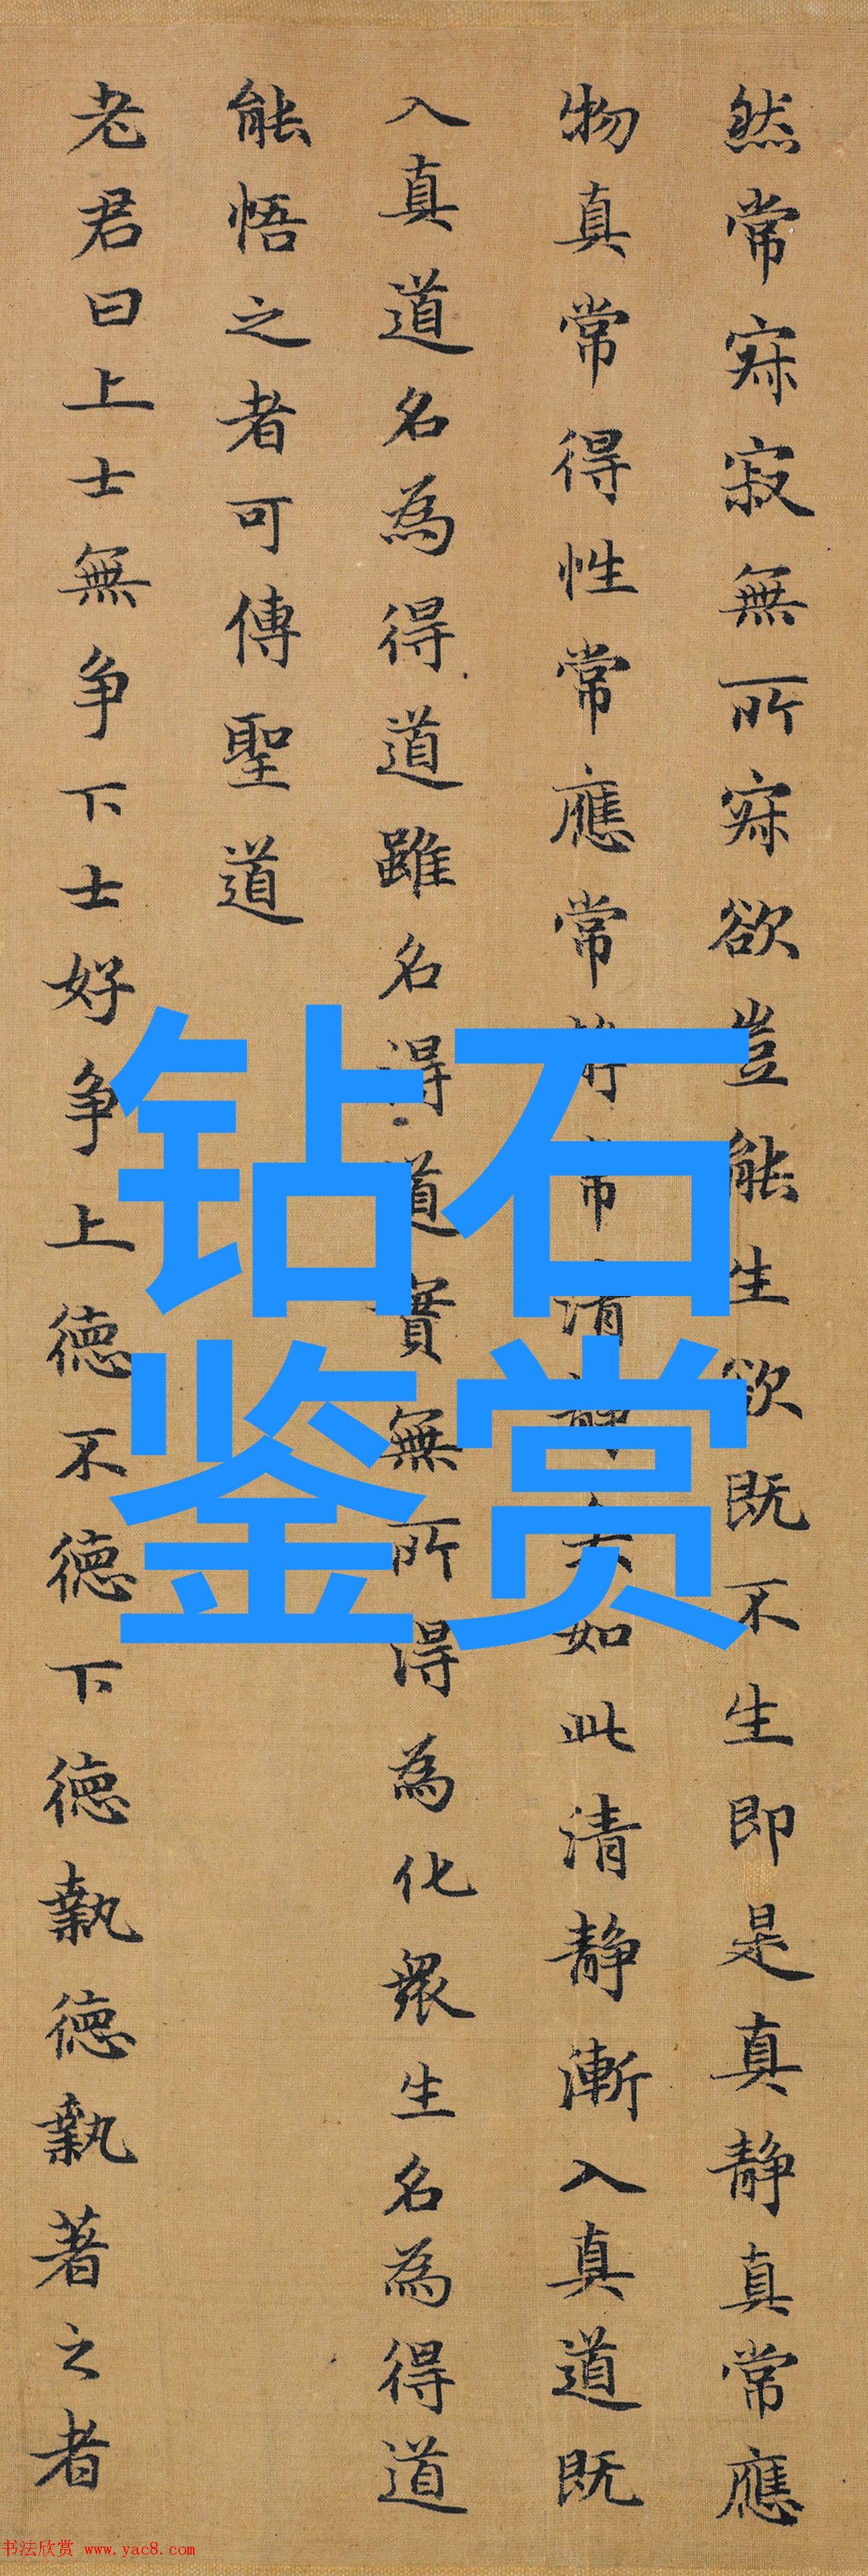 然常寂寂無所寂欲豈能生欲既不生即是真静真常應
物真常得性常應常静常清静矣如此清静漸入真道既
入真道名為得道雖名得道實無所得為化衆生名為得道
能悟之者可傳聖道
老君曰上士無争下士好争上德不德下德執德執著之者
钻石
鉴赏
书法欣赏 www.yac8.com